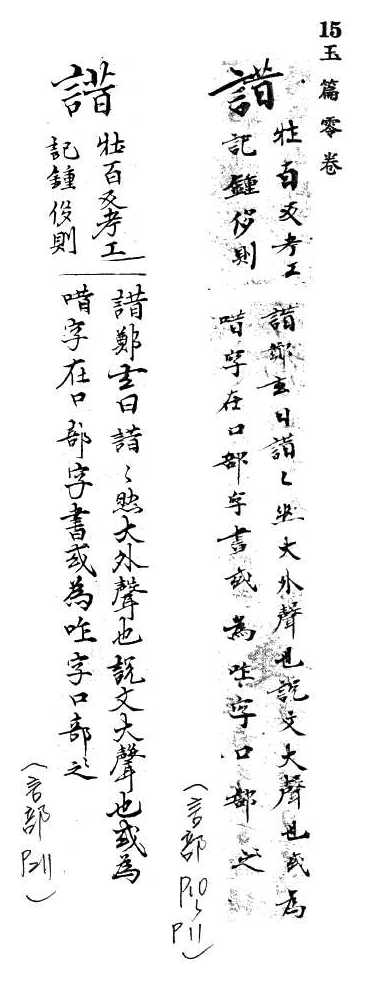 15玉篇零卷
諎
壯百反考工
記鍾侈則
諎鄭玄曰諎〻然大外聲也說文大聲也或為
唶字在口部字書或為咋字口部之
(言部 P10〜P11)
諎
壯百反考工
記鍾侈則
諎鄭玄曰諎〻然大外聲也說文大聲也或為
唶字在口部字書或為咋字口部之
(言部 P211)